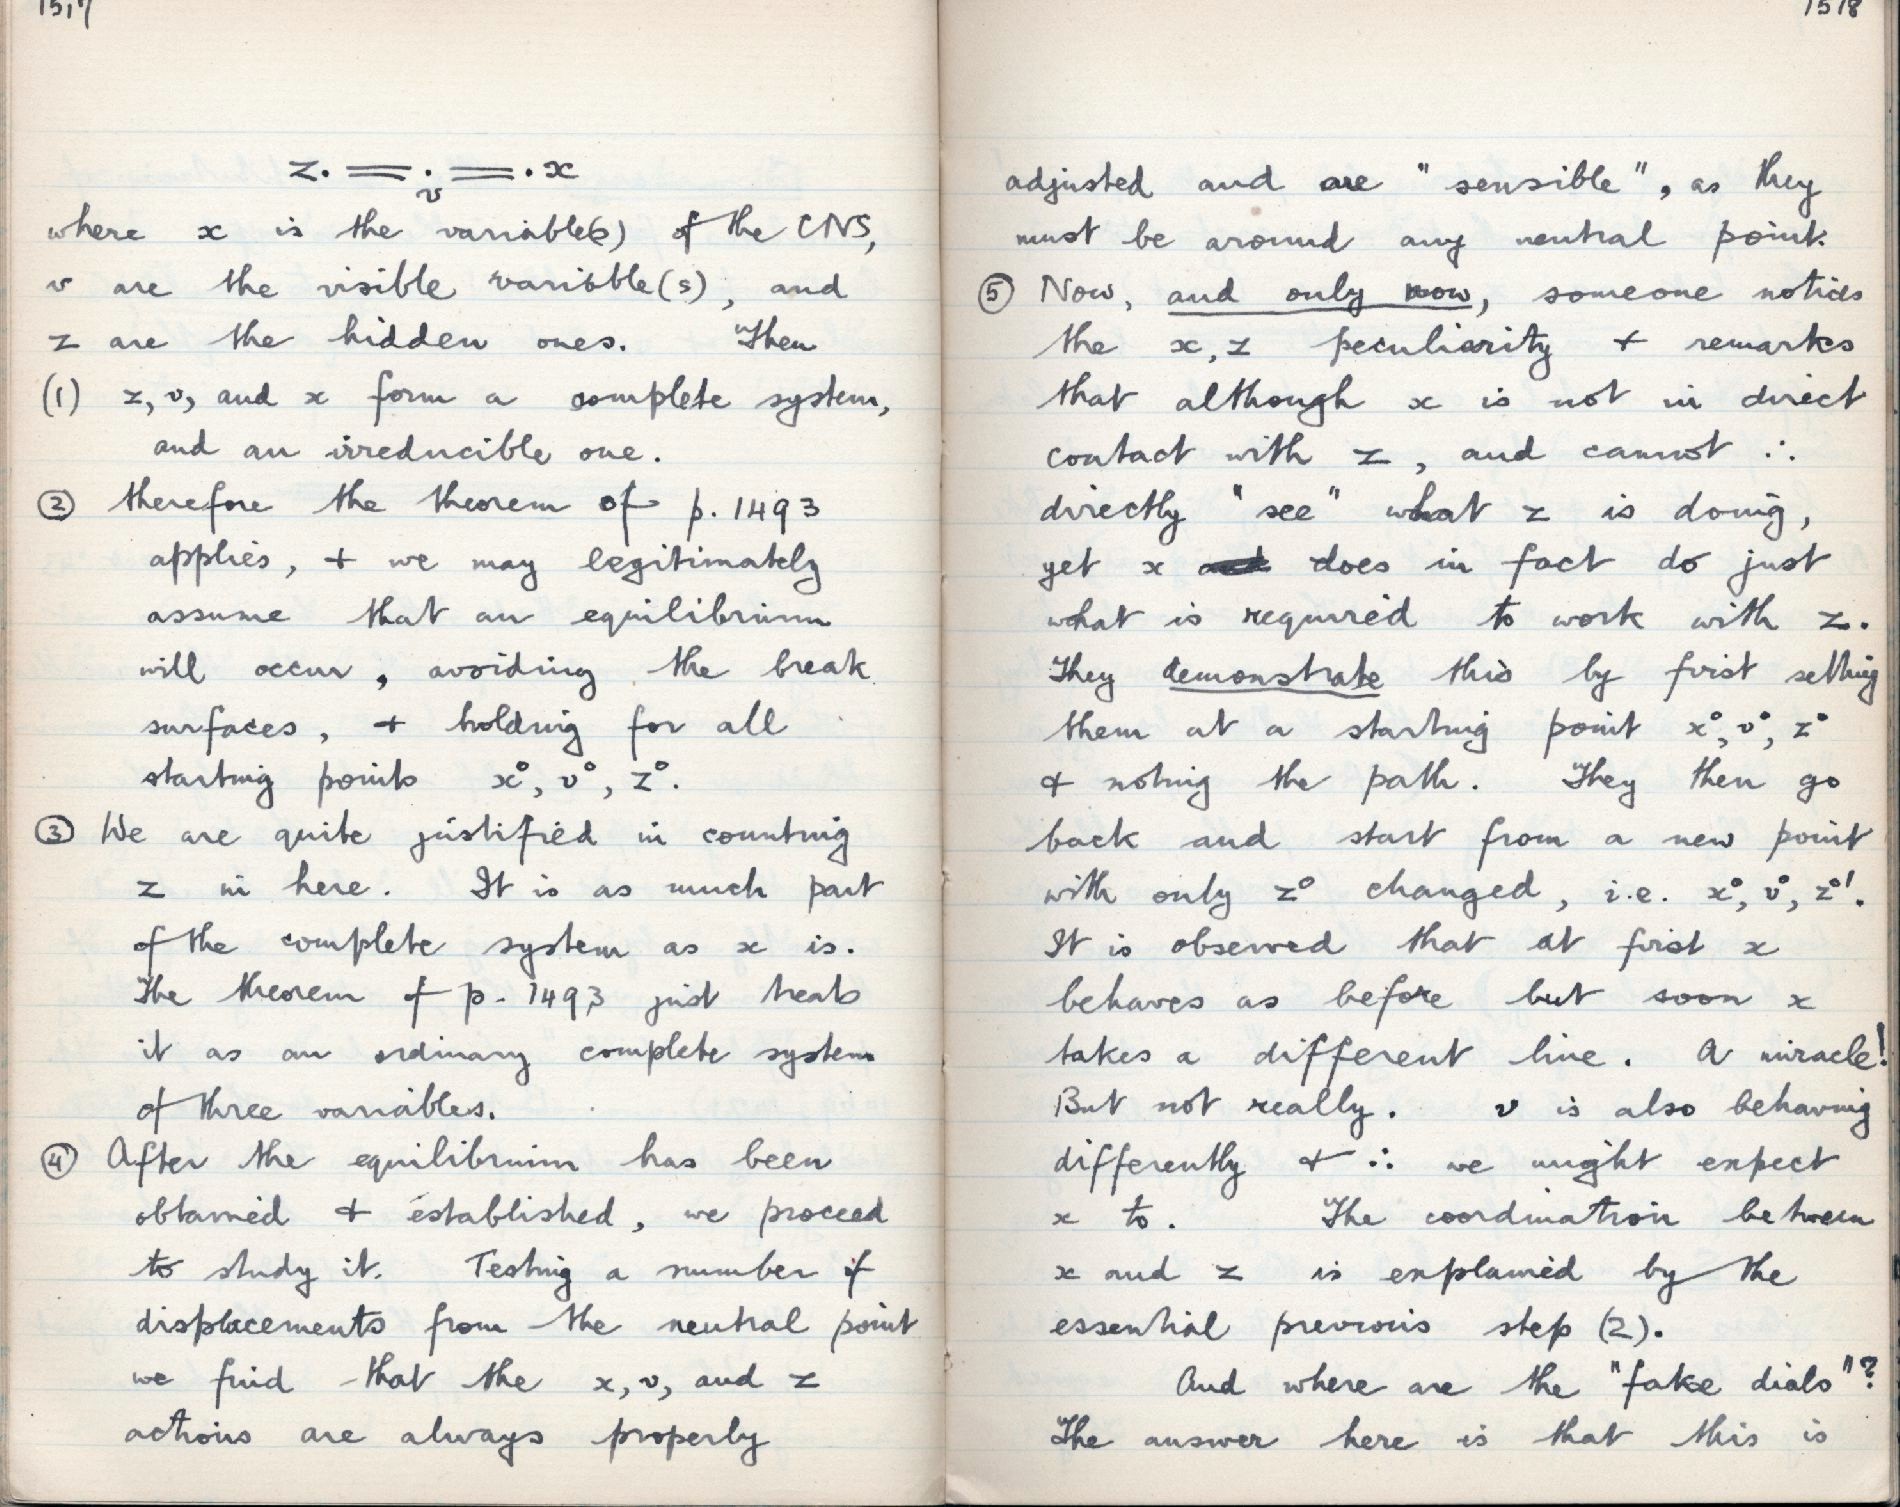 1517
z. == . == . x
v
where x is the variable(s) of the CNS,
v are the visible variable(s), and
z are the hidden ones. Then
(1) z, v, and x form a complete system,
and an irreducible one.
② therefore the theorem of p. 1493
applies, + we may legitimately
assume that an equilibrium
will occur, avoiding the break
surfaces, + holding for all
starting points x°, v°, z°.
③ We are quite justified in counting
z in here. It is as much part
of the complete system as x is.
The theorem of p. 1493 just treats
it as an ordinary complete system
of three variables.
④ After the equilibrium has been
obtained + established, we proceed
to study it. Testing a number of
displacements from the neutral point
we find that the x, v, and z
actions are always properly
1518
adjusted and are "sensible", as they
must be around any neutral point.
⑤ Now, and only now, someone notices
the x, z peculiarity + remarks
that although x is not in direct
contact with z, and cannot ∴
directly "see" what z is doing,
yet x does in fact do just
what is required to work with z.
They demonstrate this by first setting
them at a starting point x°, v°, z°
+ noting the path. They then go
back and start from a new point
with only z° changed, i.e. x°, v°, z°'.
It is observed that at first x
behaves as before but soon x
takes a different line. A miracle!
But not really. v is also behaving
differently + ∴ we might expect
x to. The coordination between
x and z is explained by the
essential previous step (2).
And where are the "fake dials"?
The answer here is that this is